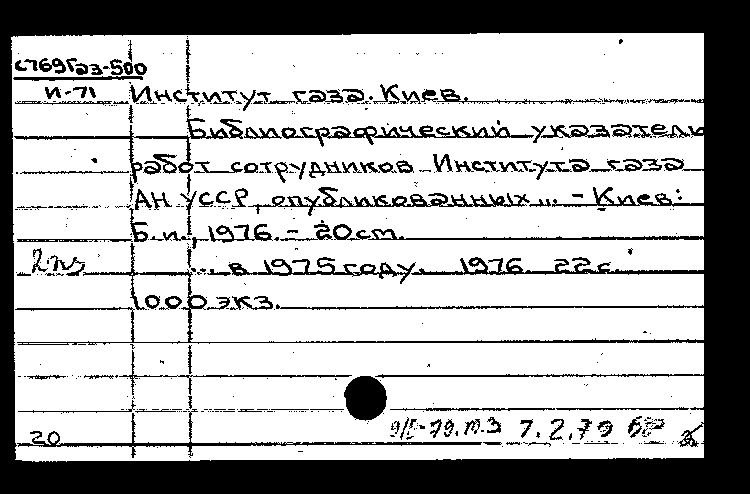 С769Газ-500
И-71 Институт газа. Киев.
Библиографический указатель
работ сотрудников Института газа
АН УССР, опубликованных... - Киев:
Б.и., 1976. - 20 см.
... в 1975 году. 1976. 22 с.
1000 экз.
20 7.2.79